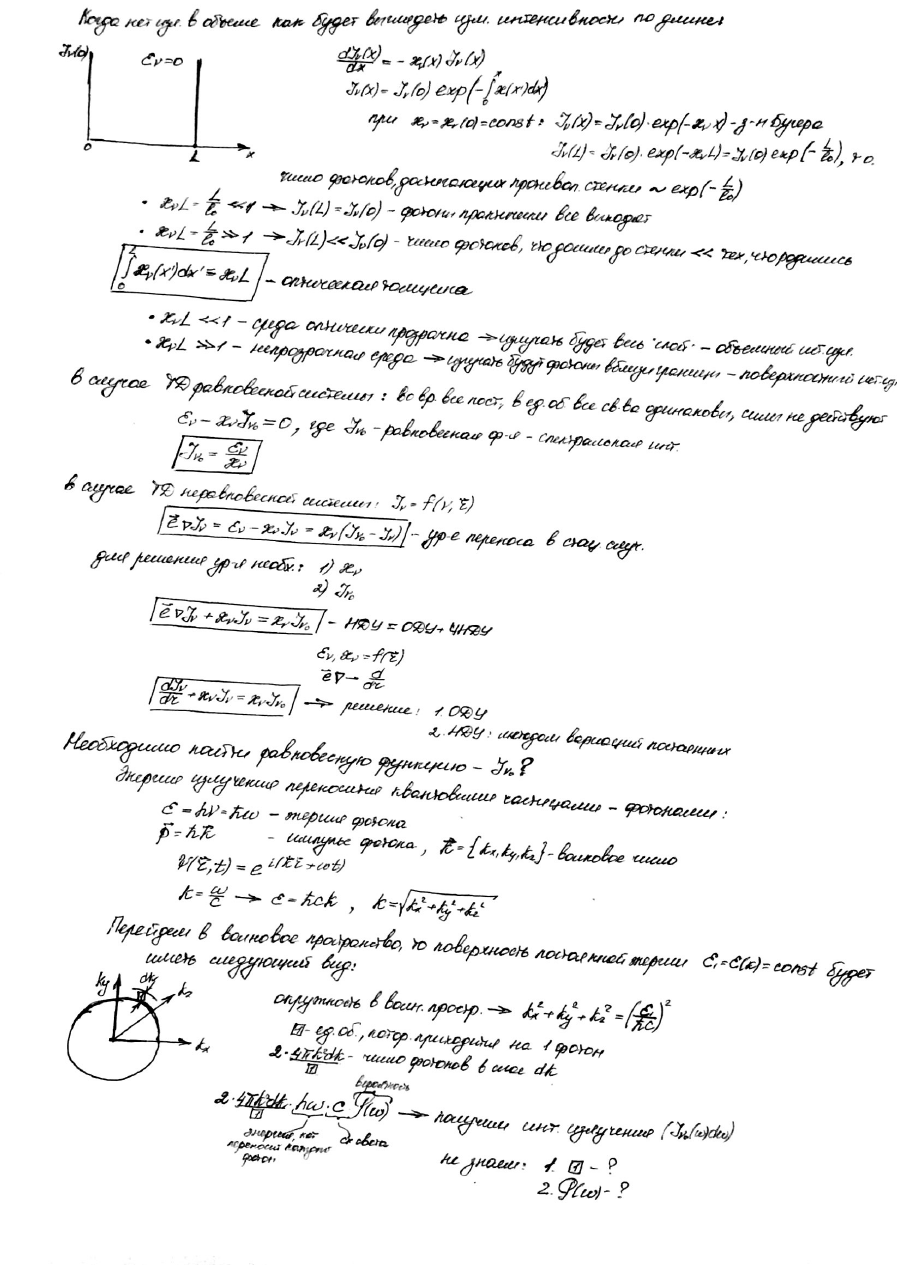 Когда нет изл. в объеме как будет выглядеть изм. интенсивности по длине:
Jν(0) εν=0 0 L x
dJν(x)/dx = - ϰν(x) Jν(x)
Jν(x) = Jν(0) exp(-∫₀ˣ ϰ(x)dx')
при ϰν=ϰν(0)=const: Jν(x)=Jν(0)·exp(-ϰν x) - з-н Бугера
Jν(L) = Jν(0)·exp(-ϰνL) = Jν(0) exp(-L/l₀), т.о.
число фотонов, достигающих противопол. стенки ~ exp(-L/l₀)
• ϰνL = L/l₀ <<1 → Jν(L)=Jν(0) - фотоны практически все выходят
• ϰνL = L/l₀ >>1 → Jν(L)<<Jν(0) - число фотонов, что дошли до стенки << тех, что родились
∫₀ᴸ ϰν(x')dx' = ϰνL - оптическая толщина
• ϰνL <<1 - среда оптически прозрачна → излучать будет весь "слой" - объемный ист. изл.
• ϰνL >>1 - непрозрачная среда → излучать будут фотоны вблизи границы - поверхностный ист. изл.
в случае ТД равновесной системы: во вр. все пост, в ед. об все св-ва одинаковы, силы не действуют
εν - ϰνJν₀ = 0, где Jν₀ - равновесная ф-я - спектральная инт.
Jν₀ = εν/ϰν
в случае ТД неравновесной системы: Jν = f(ν, r⃗)
e⃗∇Jν = εν - ϰνJν = ϰν(Jν₀ - Jν) - ур-е переноса в стац. случ.
для решения ур-я необх.: 1) ϰν
2) Jν₀
e⃗∇Jν + ϰνJν = ϰνJν₀ - НДУ = ОДУ + ЧНДУ
εν, ϰν = f(r⃗)
e⃗∇ → d/dr
dJν/dr + ϰνJν = ϰνJν₀ → решение: 1. ОДУ
2. НДУ: методом вариаций постоянных
Необходимо найти равновесную функцию - Jν₀?
Энергия излучения переносится квантовыми частицами - фотонами:
ε = hν = ħω - энергия фотона
p⃗ = ħk⃗ - импульс фотона, k⃗ = {kx, ky, kz} - волновое число
Ψ(r⃗,t) = e^i(k⃗r⃗+ωt)
k = ω/c → ε = ħck, k = √(kx²+ky²+kz²)
Перейдем в волновое пространство, то поверхность постоянной энергии ε₁=ε(k)=const будет
иметь следующий вид:
ky dky kz kx
окружность в волн. простр. → kx²+ky²+kz² = (ε₁/ħc)²
1 - ед. об., котор. приходится на 1 фотон
2·4πk²dk/1 - число фотонов в слое dk
вероятность
2·4πk²dk/1 · ħω · c P(ω) → получим инт. излучения (Jν₀(ω)dω)
энергия, кот. переносит каждый фотон
ск. света
не знаем: 1. 1 - ?
2. P(ω) - ?